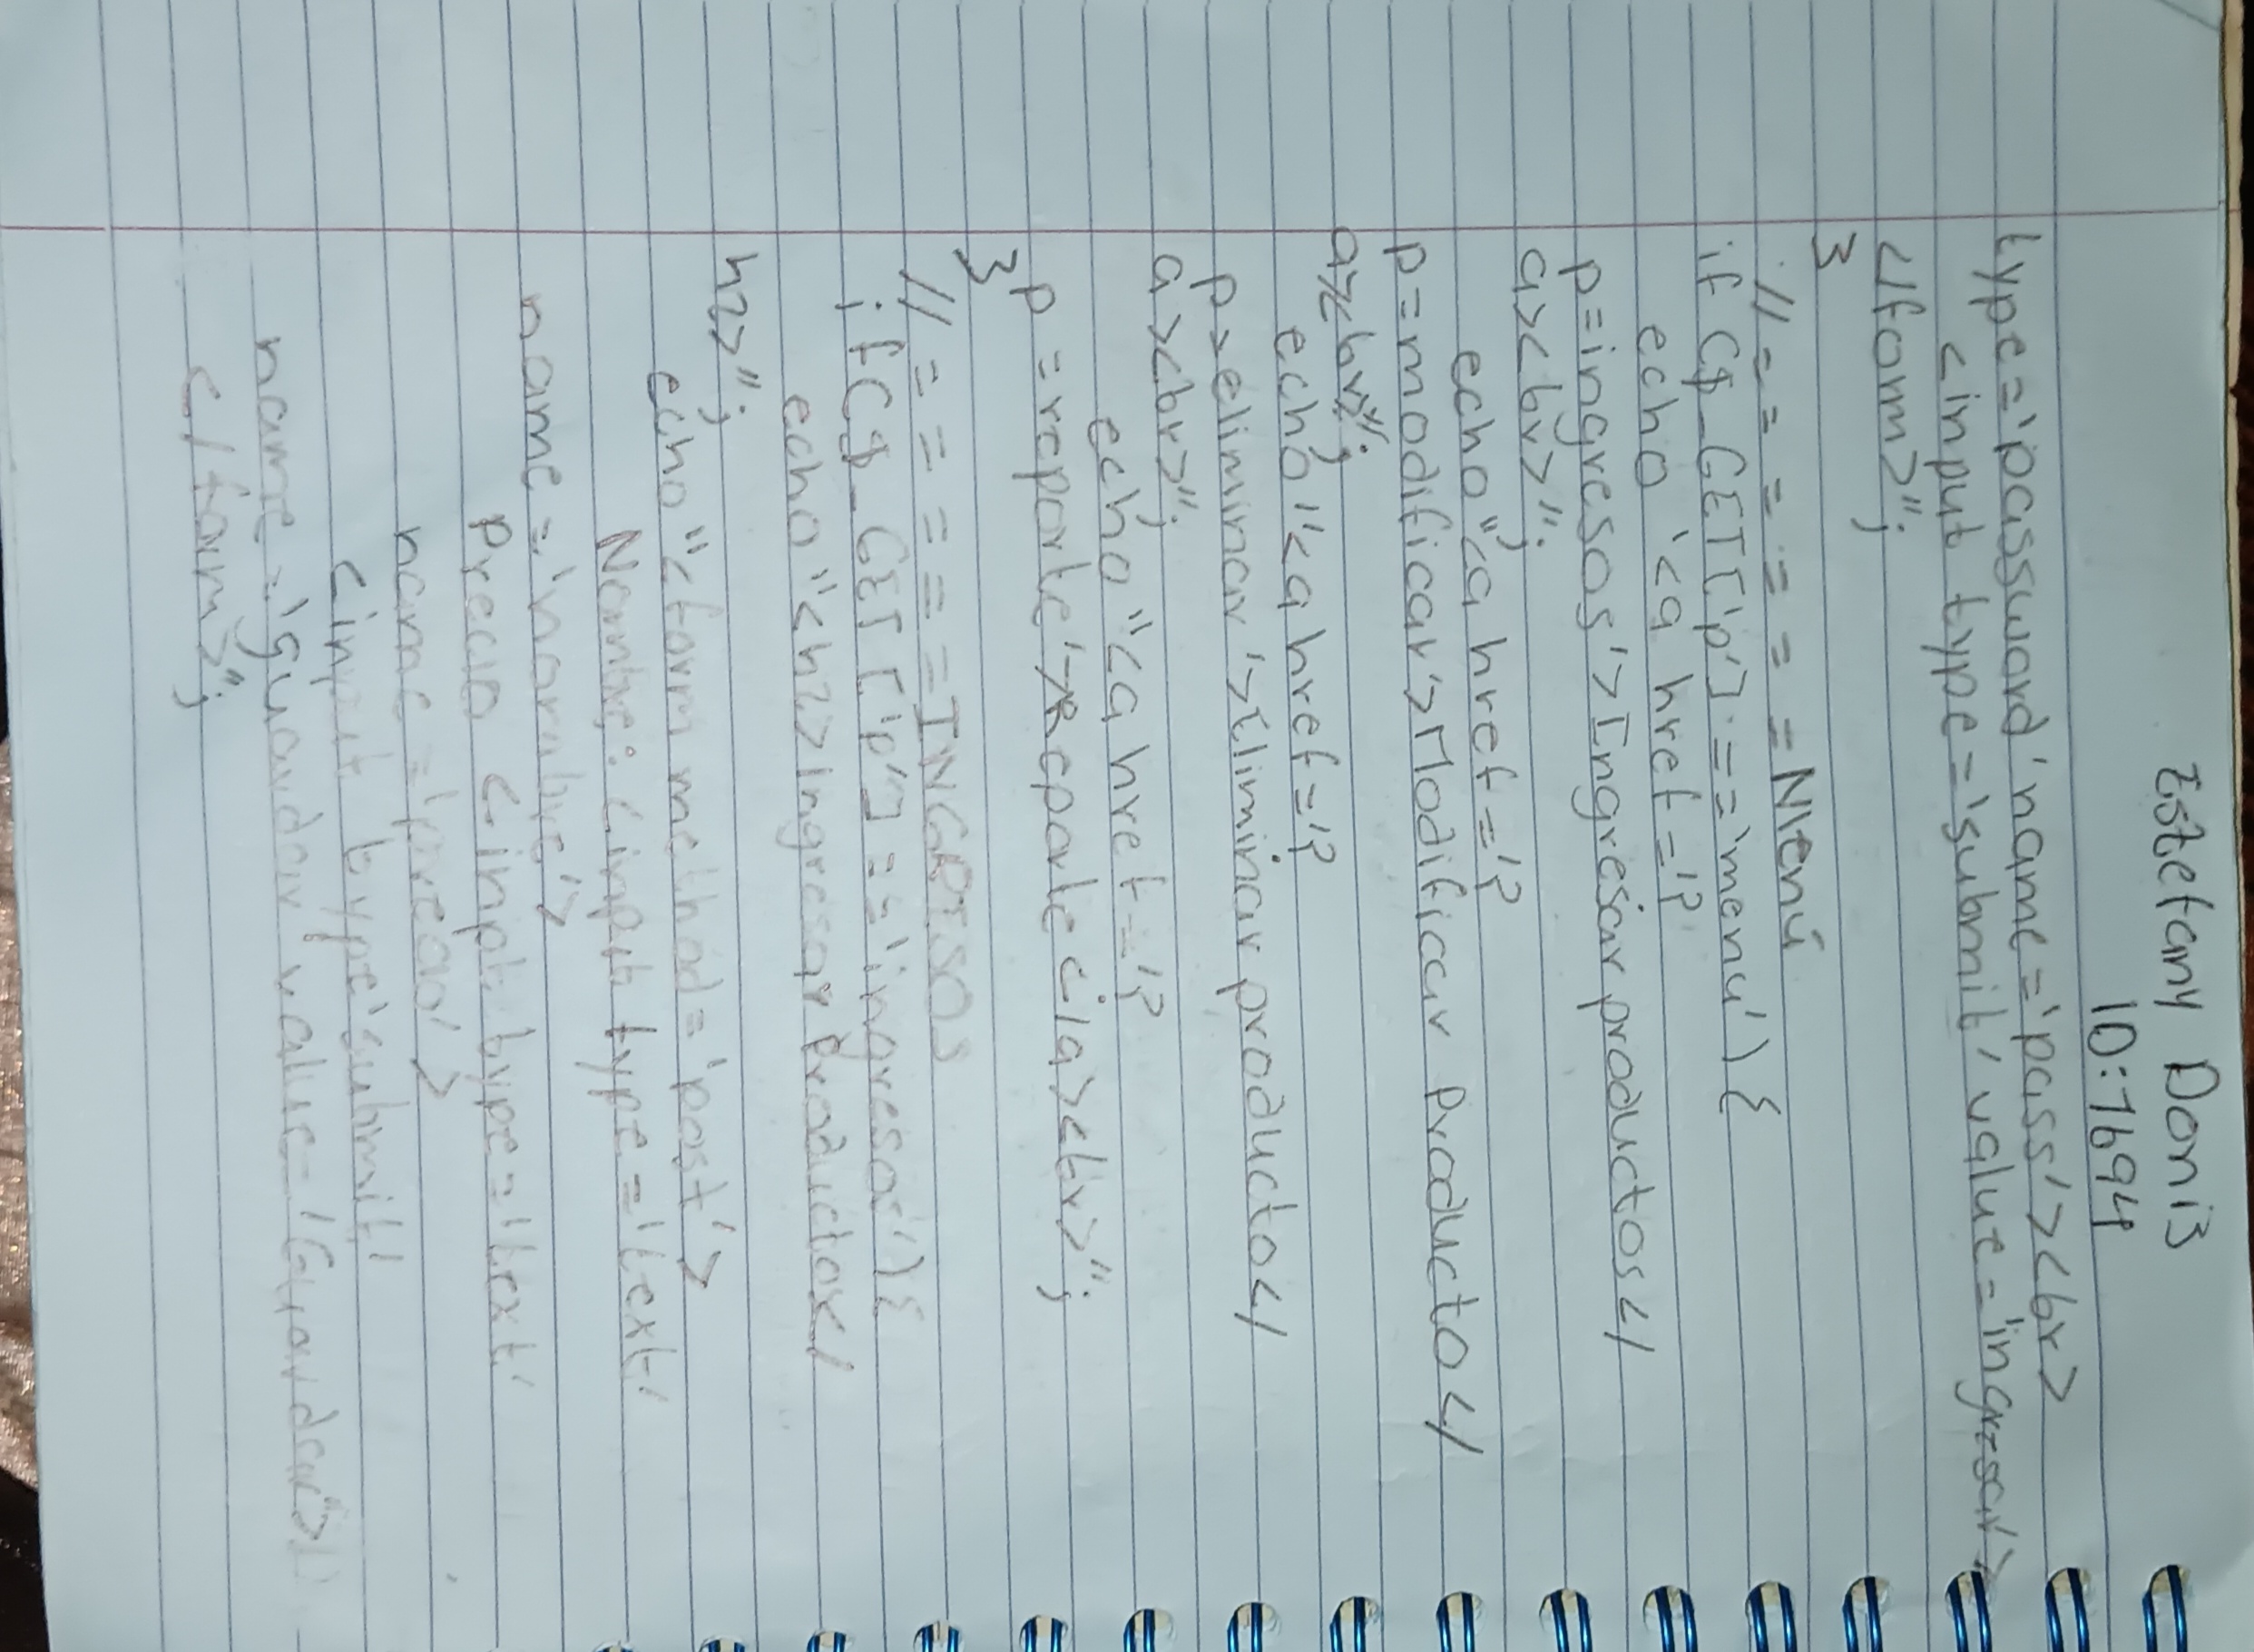 Estefany Donis
10:7694
type='password' name='pass'><br>
<input type='submit' value='ingresar'>
</form>";
}
// = = = = = = = Menú
if ($_GET['p'] == 'menu') {
echo '<a href='?
p=ingresos'>Ingresar productos</
a><br>";
echo "<a href='?
p=modificar'>Modificar Producto</
a><br>";
echo "<a href='?
p>eliminar'>Eliminar producto</
a><br>";
echo "<a href='?
p=reporte'>Reporte</a><br>";
}
// = = = = = = INGRESOS
if ($_GET['p'] == 'ingresos') {
echo "<h2>Ingresar Producto</
h2>";
echo "<form method='post'>
Nombre: <input type='text'
name='nombre'>
Precio <input type='text'
name='precio'>
<input type'submit'
name='guardar value='Guardar'>
</form>";